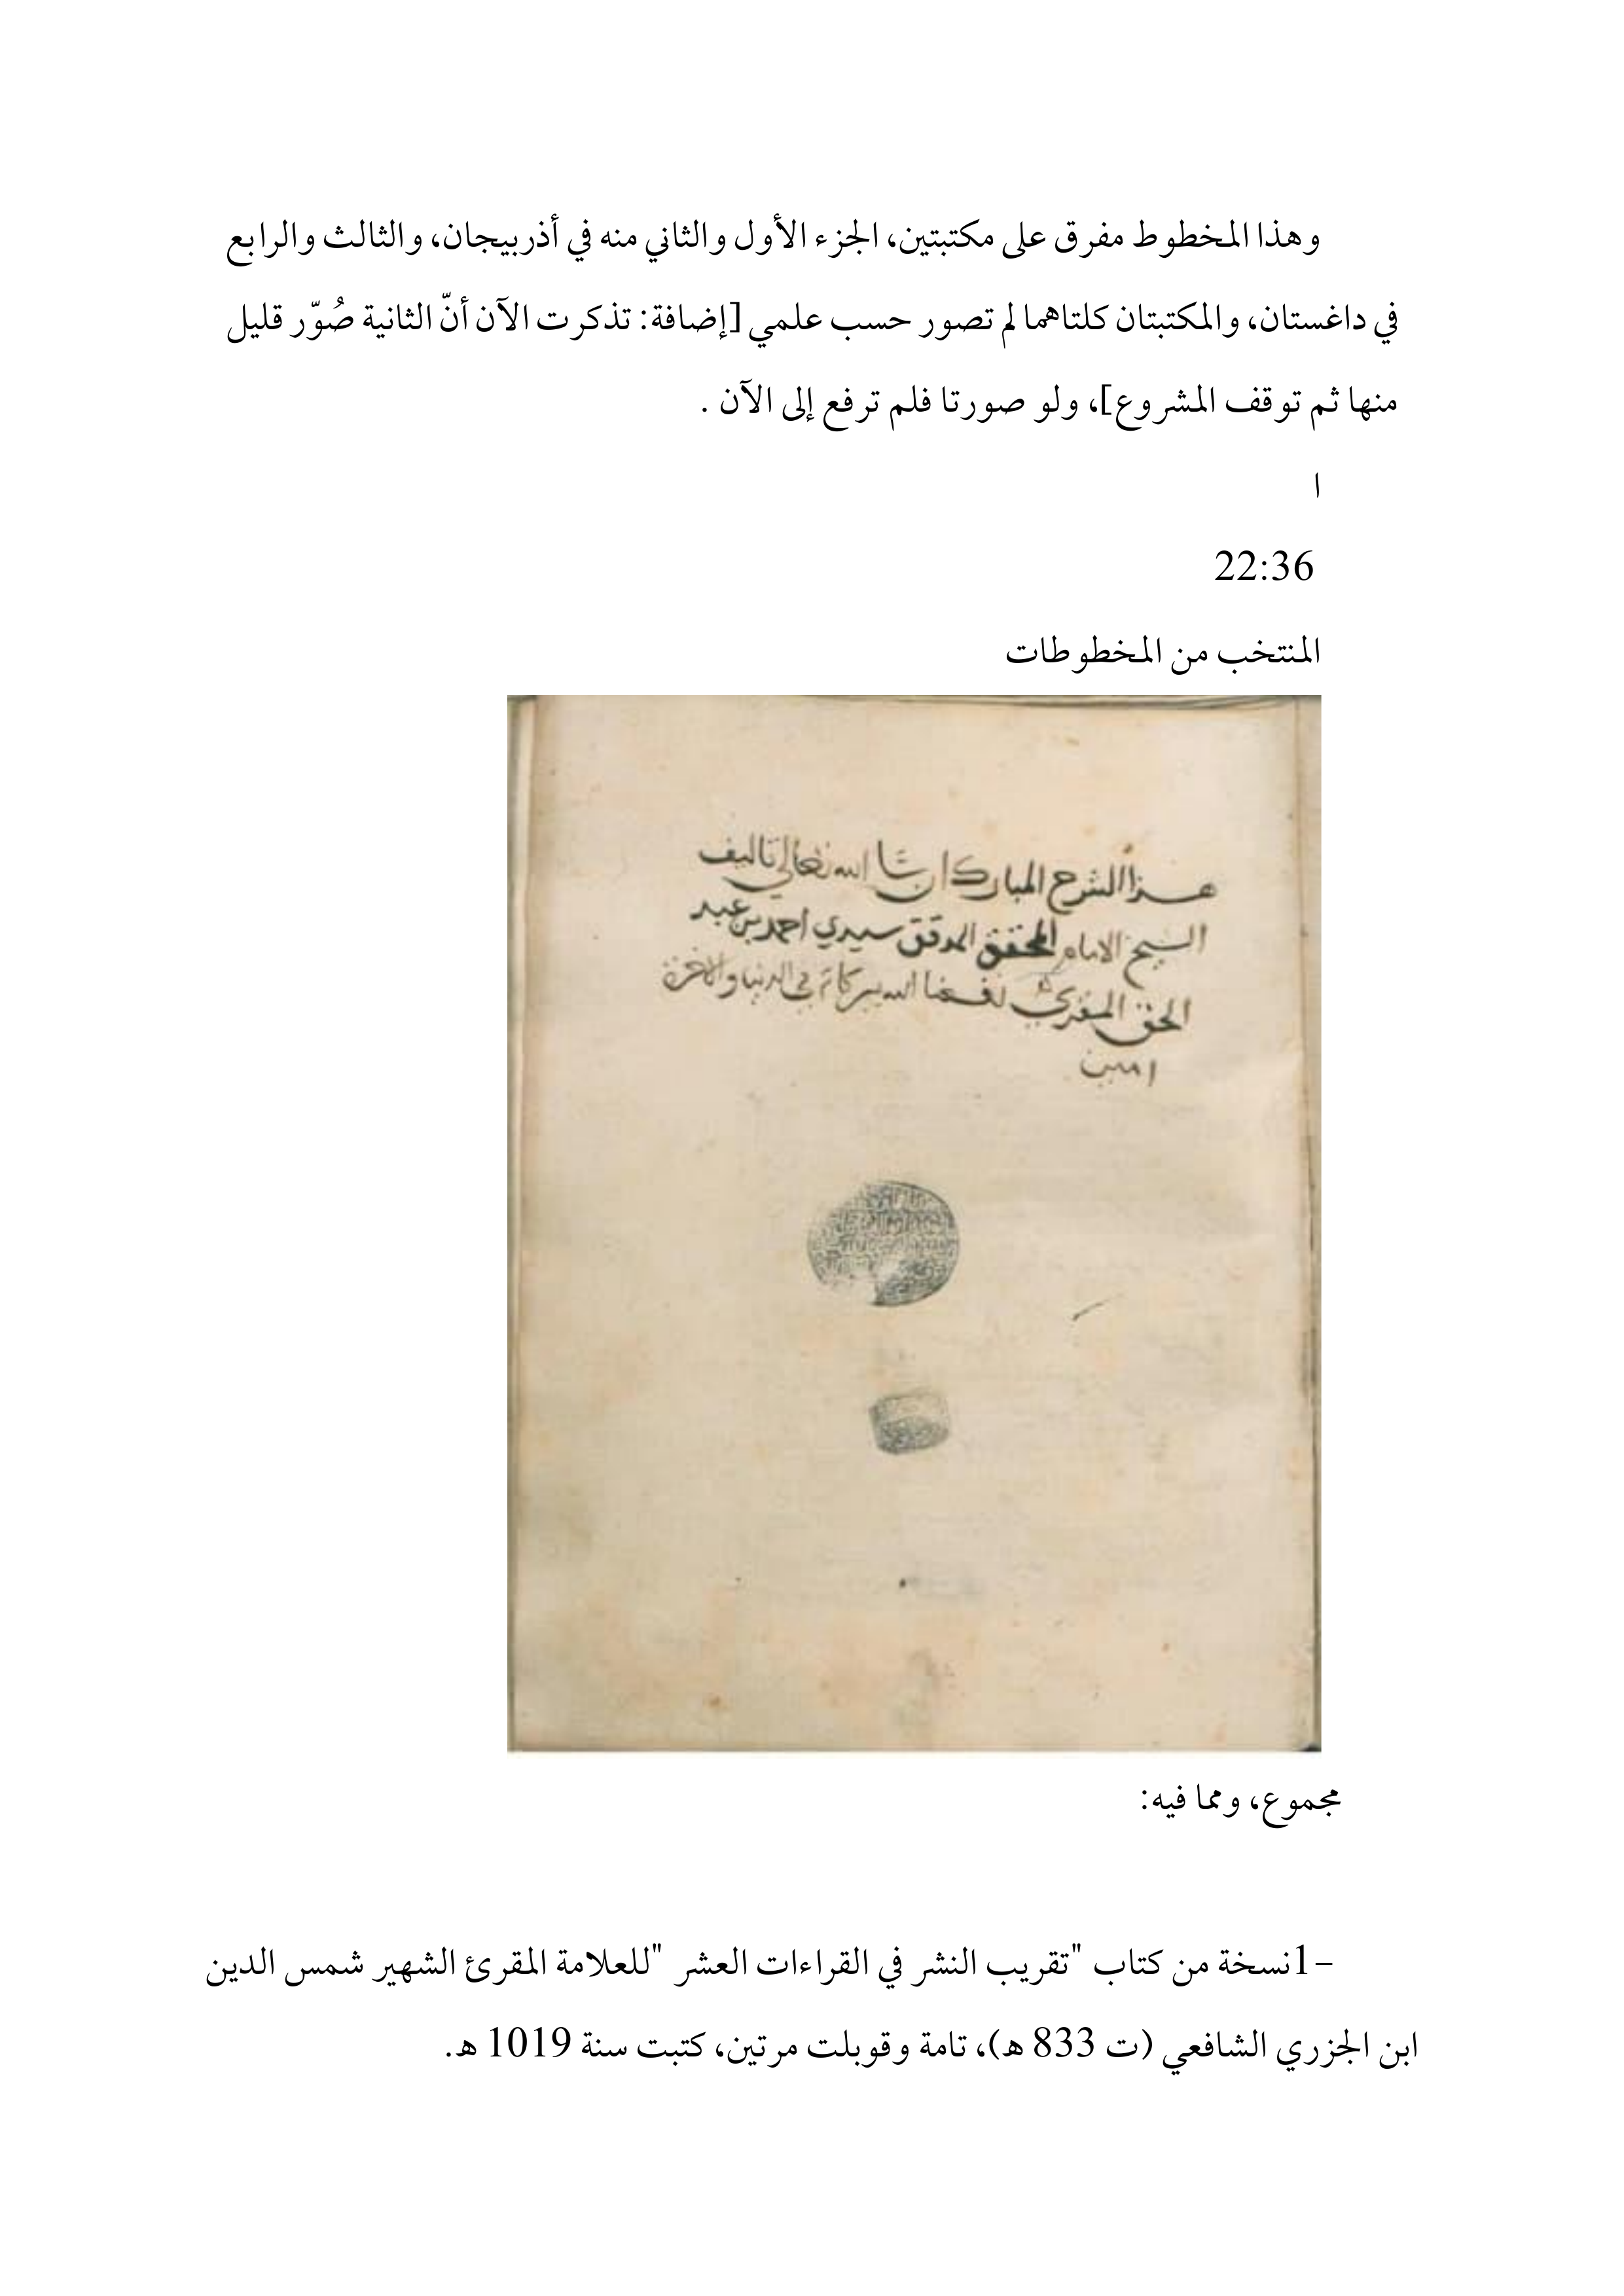 وهذا المخطوط مفرق على مكتبتين، الجزء الأول والثاني منه في أذربيجان، والثالث والرابع
في داغستان، والمكتبتان كلتاهما لم تصور حسب علمي [إضافة: تذكرت الآن أنّ الثانية صُوّر قليل
منها ثم توقف المشروع]، ولو صورتا فلم ترفع إلى الآن .
ا
22:36
المنتخب من المخطوطات
هذا الشرح المبارك ان شا الله تعالى تاليف
الشيخ الامام المحقق المدقق سيدي احمد بن عبد
الحق المقري نفعنا الله ببركاته في الدنيا والاخرة
امين
مجموع، ومما فيه:
-1نسخة من كتاب "تقريب النشر في القراءات العشر "للعلامة المقرئ الشهير شمس الدين
ابن الجزري الشافعي (ت 833 هـ)، تامة وقوبلت مرتين، كتبت سنة 1019 هـ.